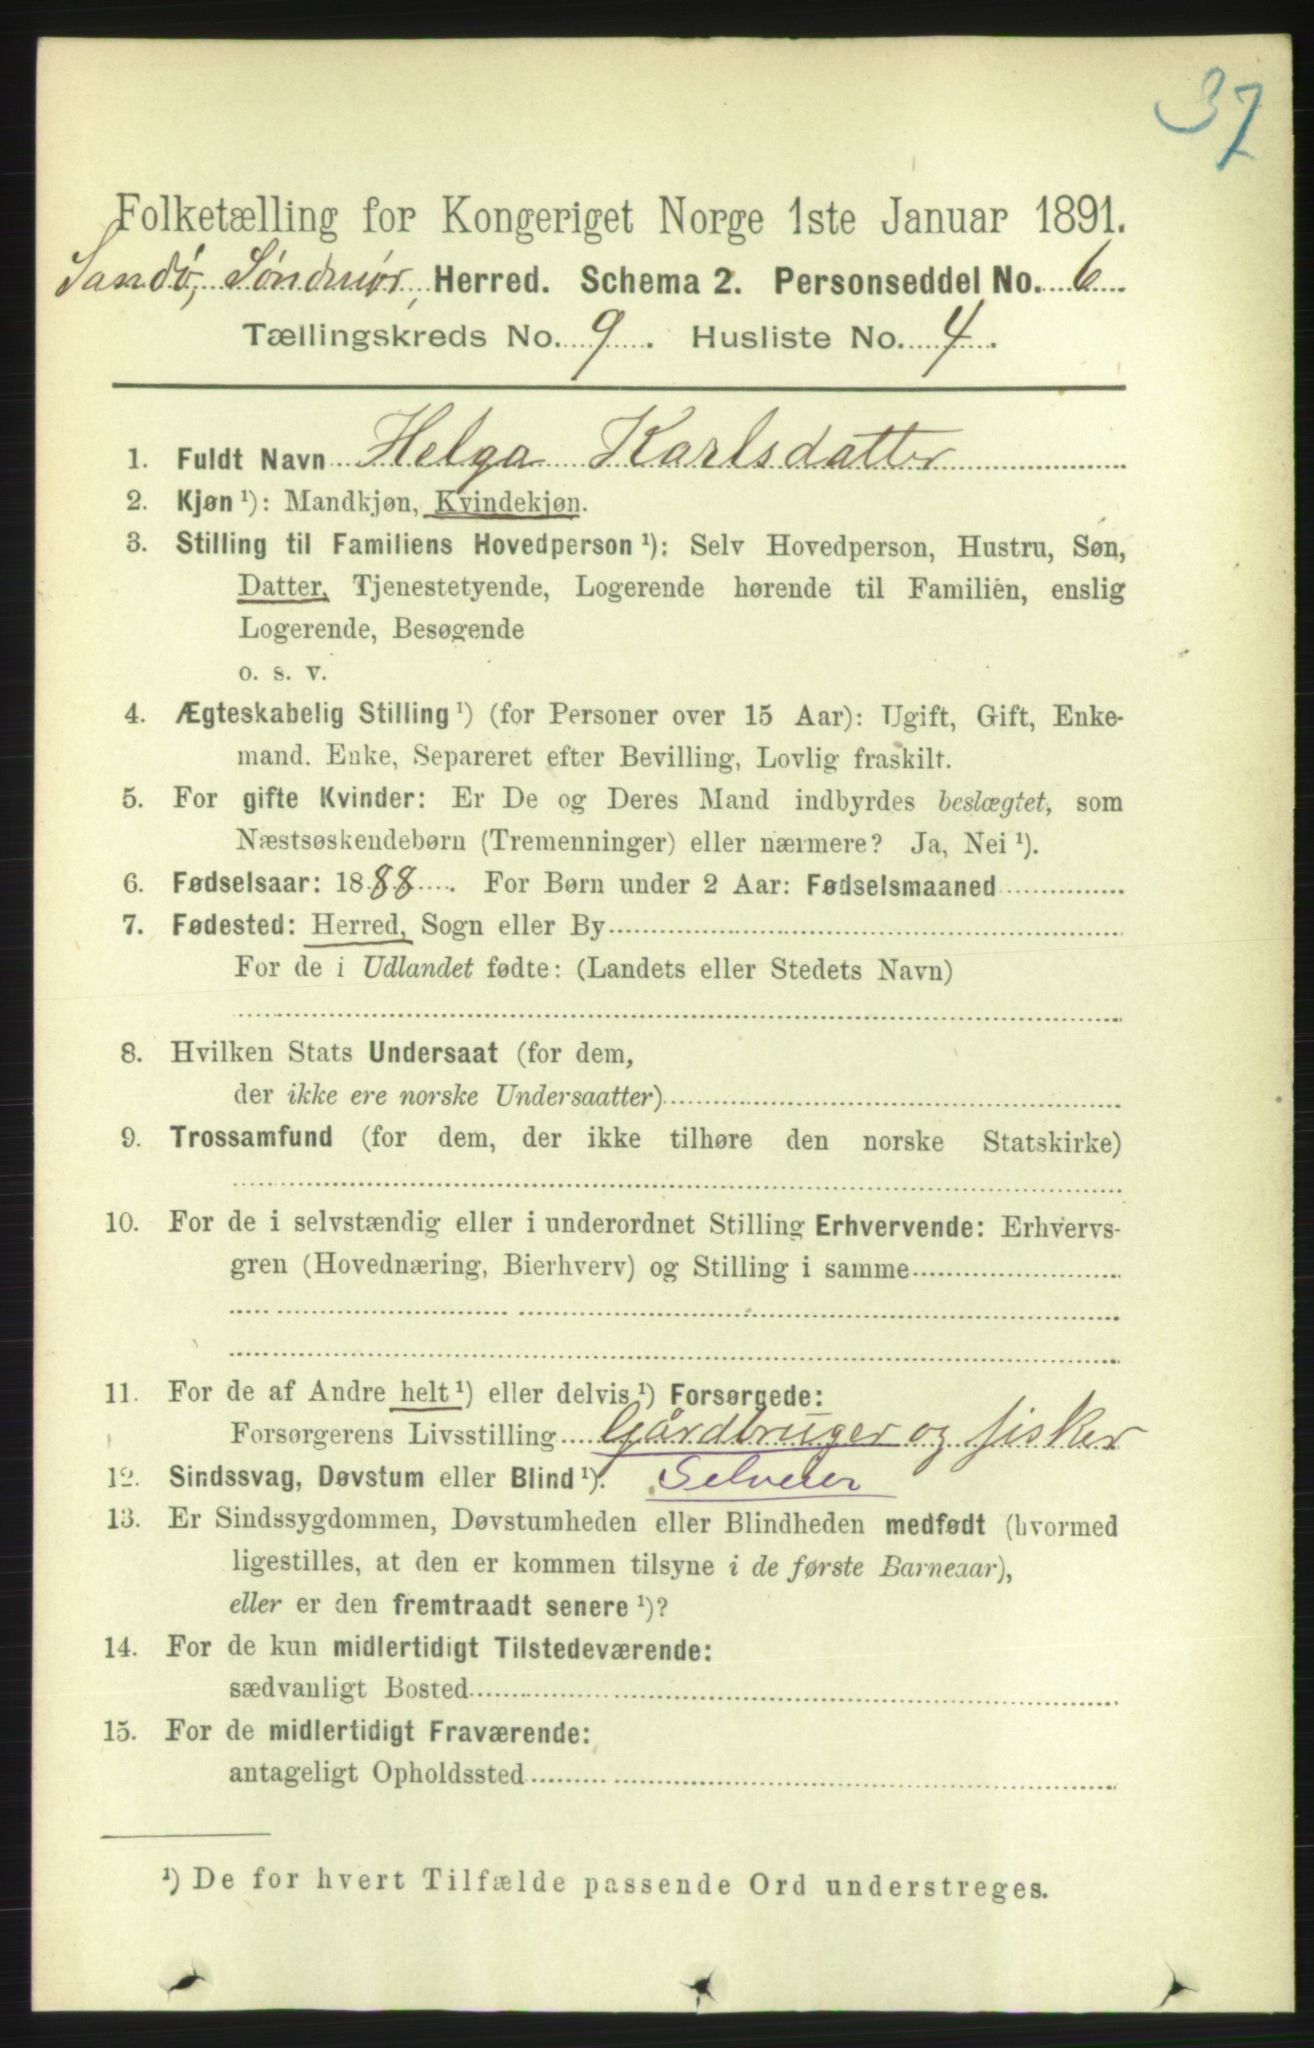 37
Folketælling for Kongeriget Norge 1ste Januar 1891.
Sandö, Söndmör, Herred. Schema 2. Personseddel No. 6
Tællingskreds No. 9. Husliste No. 4.
1. Fuldt Navn Helga Karlsdatter
2. Kjøn ¹): Mandkjøn, Kvindekjøn.
3. Stilling til Familiens Hovedperson ¹): Selv Hovedperson, Hustru, Søn,
Datter, Tjenestetyende, Logerende hørende til Familien, enslig
Logerende, Besøgende
o. s. v.
4. Ægteskabelig Stilling ¹) (for Personer over 15 Aar): Ugift, Gift, Enke-
mand. Enke, Separeret efter Bevilling, Lovlig fraskilt.
5. For gifte Kvinder: Er De og Deres Mand indbyrdes beslægtet, som
Næstsøskendebørn (Tremenninger) eller nærmere? Ja, Nei ¹).
6. Fødselsaar: 1888. For Børn under 2 Aar: Fødselsmaaned
7. Fødested: Herred, Sogn eller By
For de i Udlandet fødte: (Landets eller Stedets Navn)
8. Hvilken Stats Undersaat (for dem,
der ikke ere norske Undersaatter)
9. Trossamfund (for dem, der ikke tilhøre den norske Statskirke)
10. For de i selvstændig eller i underordnet Stilling Erhvervende: Erhvervs-
gren (Hovednæring, Bierhverv) og Stilling i samme
11. For de af Andre helt ¹) eller delvis ¹) Forsørgede:
Forsørgerens Livsstilling Gårdbruger og fisker
12. Sindssvag, Døvstum eller Blind ¹). Selveier
13. Er Sindssygdommen, Døvstumheden eller Blindheden medfødt (hvormed
ligestilles, at den er kommen tilsyne i de første Barneaar),
eller er den fremtraadt senere ¹)?
14. For de kun midlertidigt Tilstedeværende:
sædvanligt Bosted
15. For de midlertidigt Fraværende:
antageligt Opholdssted
¹) De for hvert Tilfælde passende Ord understreges.